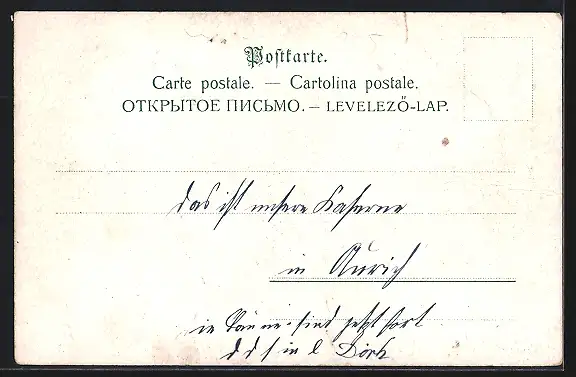 Postkarte.
Carte postale. — Cartolina postale.
ОТКРЫТОЕ ПИСЬМО. — LEVELEZŐ-LAP.
das ist unsere Kaserne
in Aurich
sind jetzt fort
in